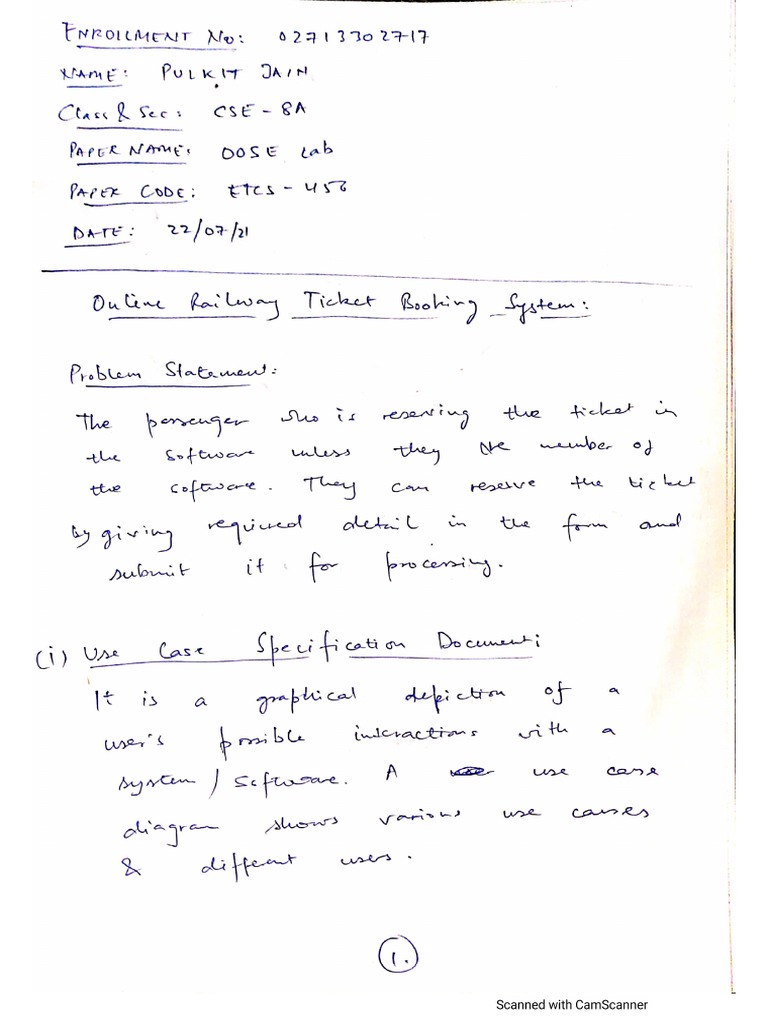 ENROLLMENT No: 02713302717
NAME: PULKIT JAIN
Class & Sec: CSE - 8A
PAPER NAME: OOSE Lab
PAPER CODE: ETCS - 456
DATE: 22/07/21
Online Railway Ticket Booking System:
Problem Statement:
The passenger who is reserving the ticket in
the software unless they are member of
the software. They can reserve the ticket
by giving required detail in the form and
submit it for processing.
(i) Use Case Specification Document:
It is a graphical depiction of a
user's possible interactions with a
system / software. A use case
diagram shows various use causes
& different users.
1.
Scanned with CamScanner